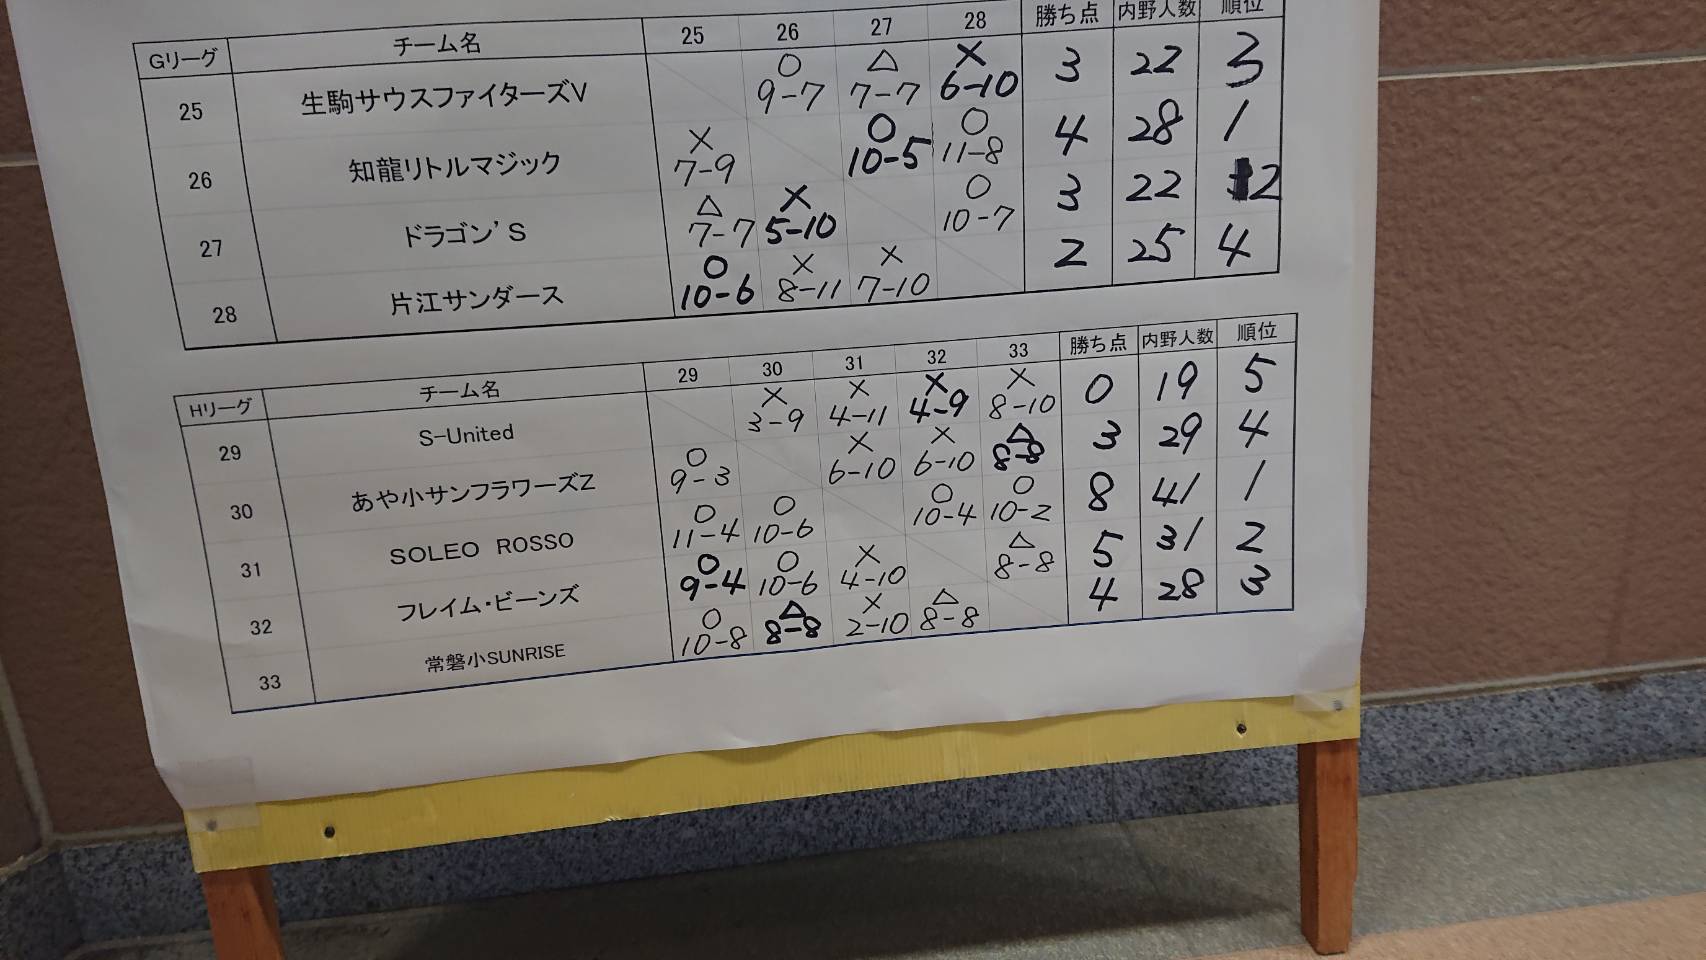 Gリーグ チーム名 25 26 27 28 勝ち点 内野人数 順位
25 生駒サウスファイターズV ○ 9-7 △ 7-7 × 6-10 3 22 3
26 知龍リトルマジック × 7-9 ○ 10-5 ○ 11-8 4 28 1
27 ドラゴン'S △ 7-7 × 5-10 ○ 10-7 3 22 2
28 片江サンダース ○ 10-6 × 8-11 × 7-10 2 25 4
Hリーグ チーム名 29 30 31 32 33 勝ち点 内野人数 順位
29 S-United × 3-9 × 4-11 × 4-9 × 8-10 0 19 5
30 あや小サンフラワーズZ ○ 9-3 × 6-10 × 6-10 △ 8-8 3 29 4
31 SOLEO ROSSO ○ 11-4 ○ 10-6 ○ 10-4 ○ 10-2 8 41 1
32 フレイム・ビーンズ ○ 9-4 ○ 10-6 × 4-10 △ 8-8 5 31 2
33 常磐小SUNRISE ○ 10-8 △ 8-8 × 2-10 △ 8-8 4 28 3